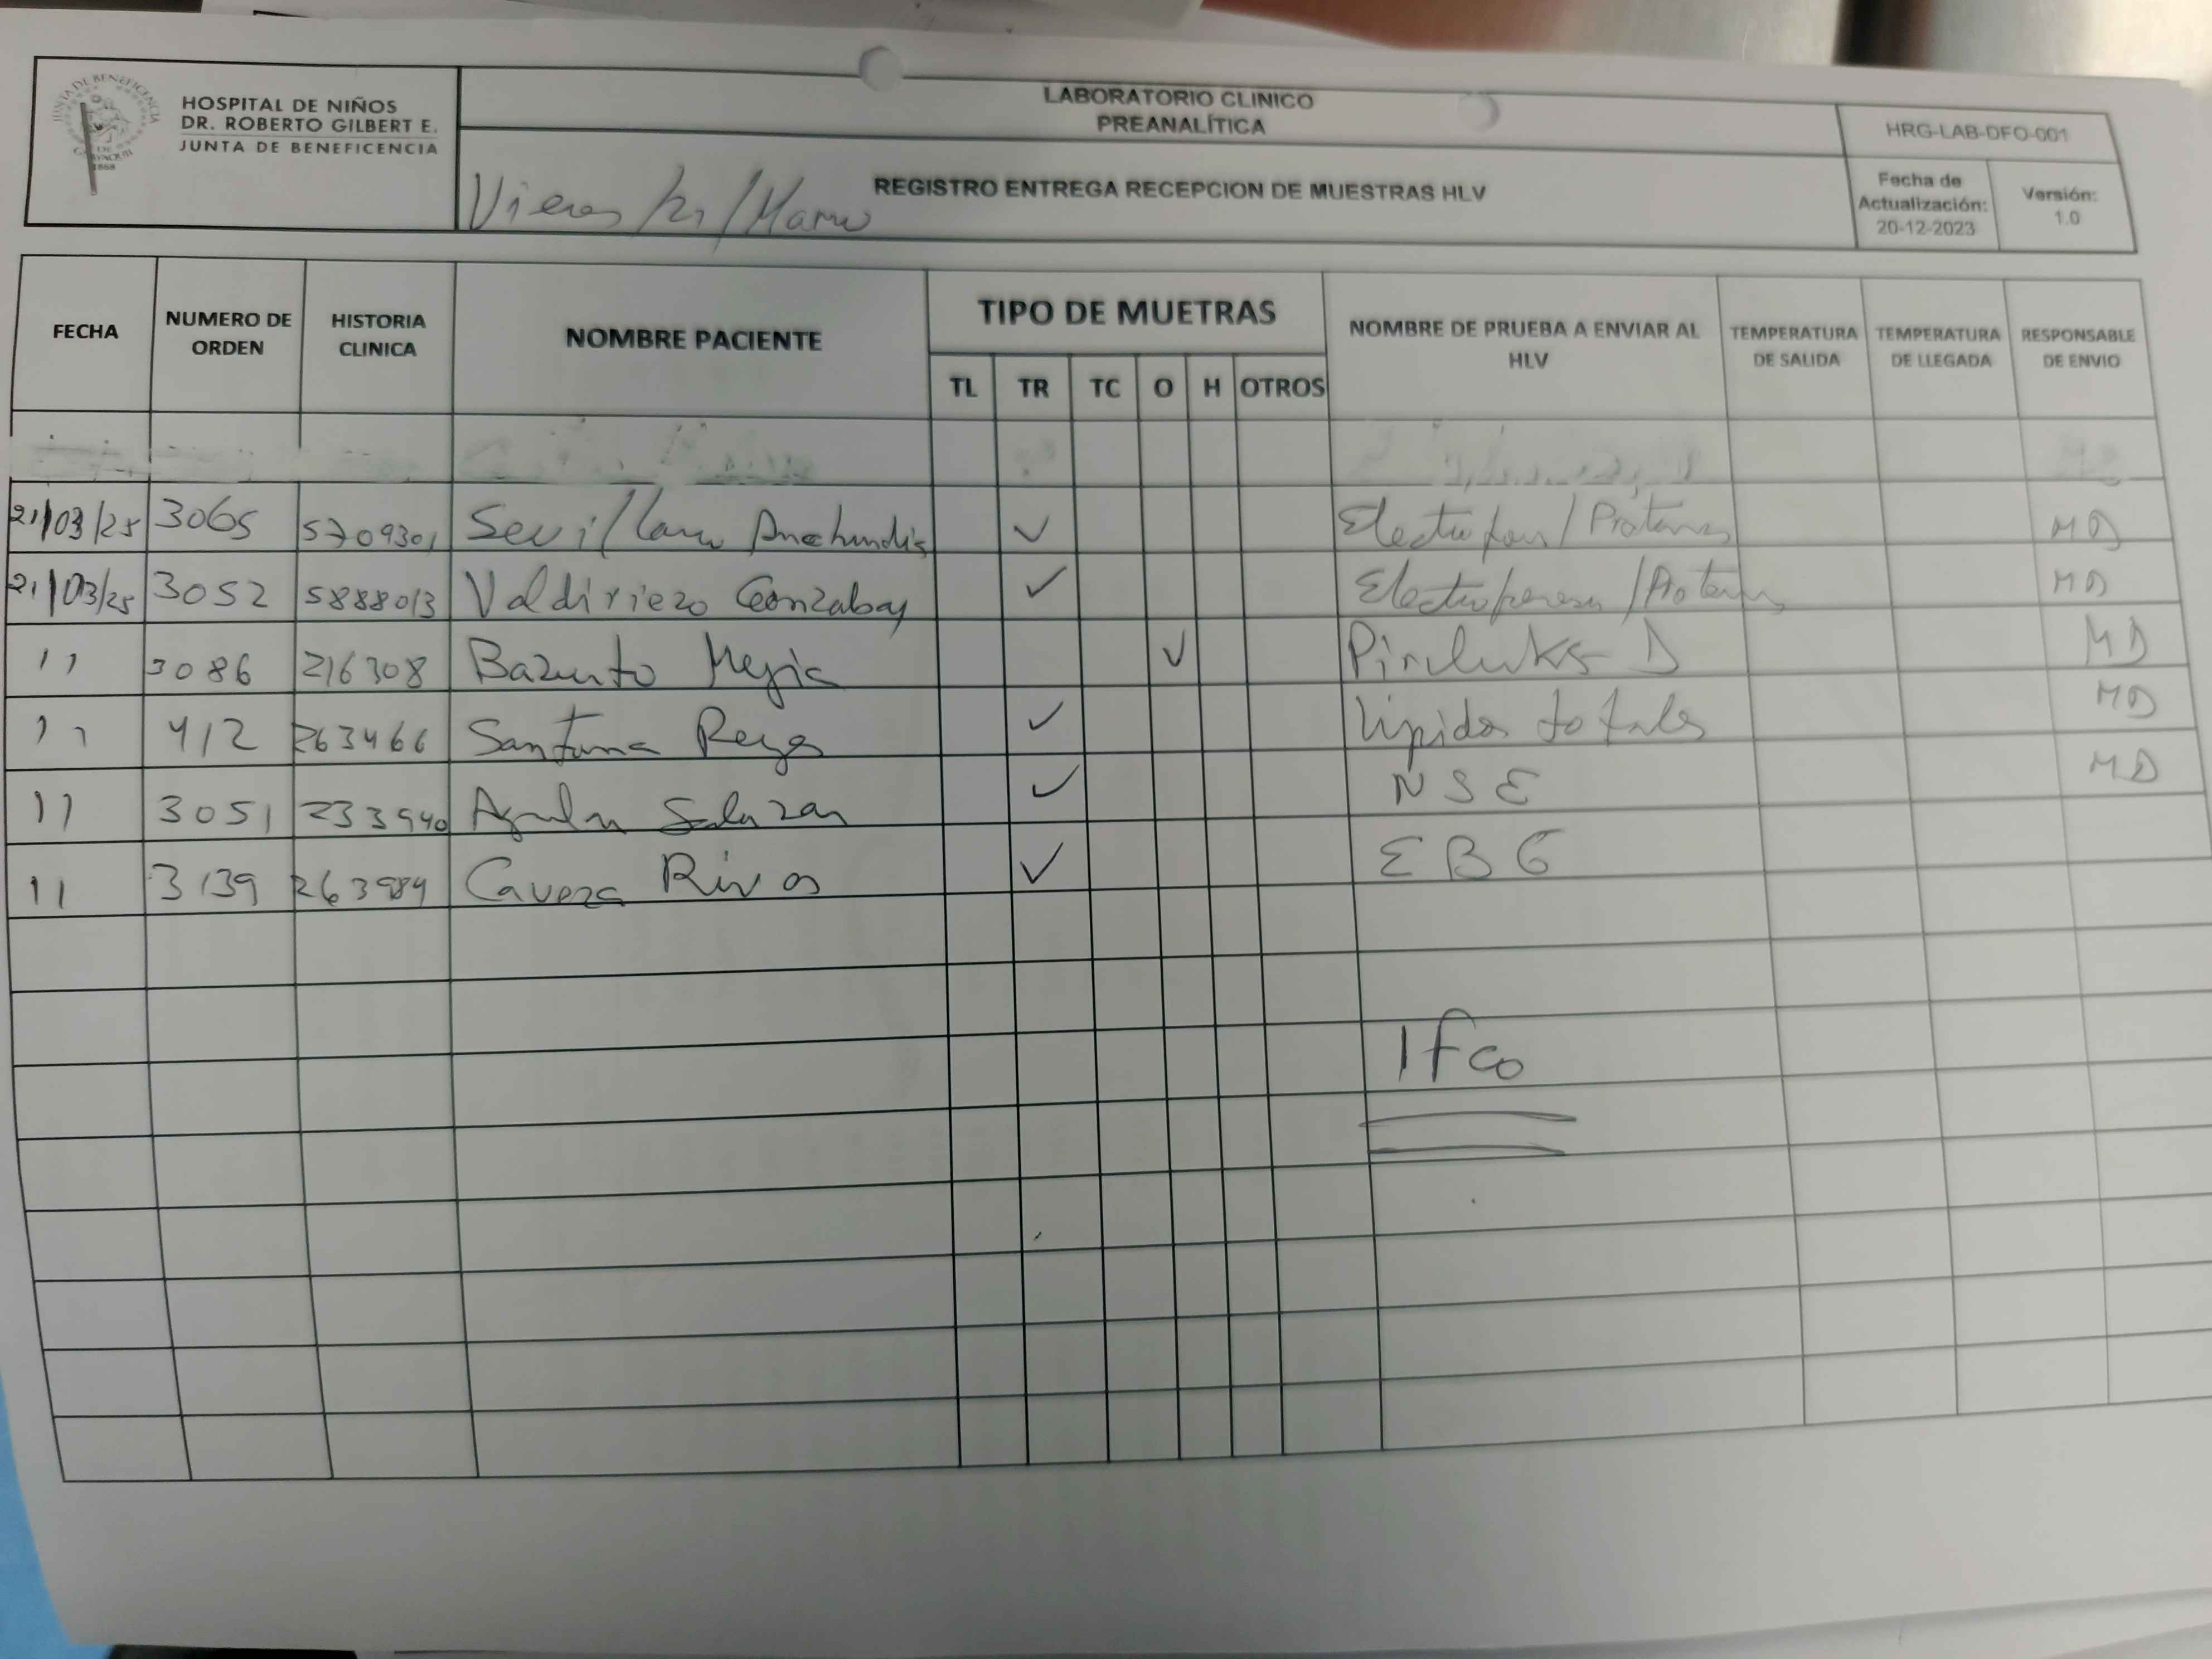 HOSPITAL DE NIÑOS
DR. ROBERTO GILBERT E.
JUNTA DE BENEFICENCIA
LABORATORIO CLINICO
PREANALÍTICA
REGISTRO ENTREGA RECEPCION DE MUESTRAS HLV
HRG-LAB-DFO-001
Fecha de Actualización: 20-12-2023
Versión: 1.0
Viernes 21/Marzo
FECHA NUMERO DE ORDEN HISTORIA CLINICA NOMBRE PACIENTE TIPO DE MUETRAS NOMBRE DE PRUEBA A ENVIAR AL HLV TEMPERATURA DE SALIDA TEMPERATURA DE LLEGADA RESPONSABLE DE ENVIO
TL TR TC O H OTROS
21/03/25 3065 5709301 Sevillano Anchundia ✓ MD
21/03/25 3052 5888013 Valdiriezo Gonzabay ✓ MD
11 3086 216308 Bazurto Mejia ✓ D MD
11 412 263466 Santana Reyes ✓ Lipidos totales MD
11 3051 233940 Salazar ✓ NSE MD
11 3139 263989 Caveza Rivas ✓ EBG